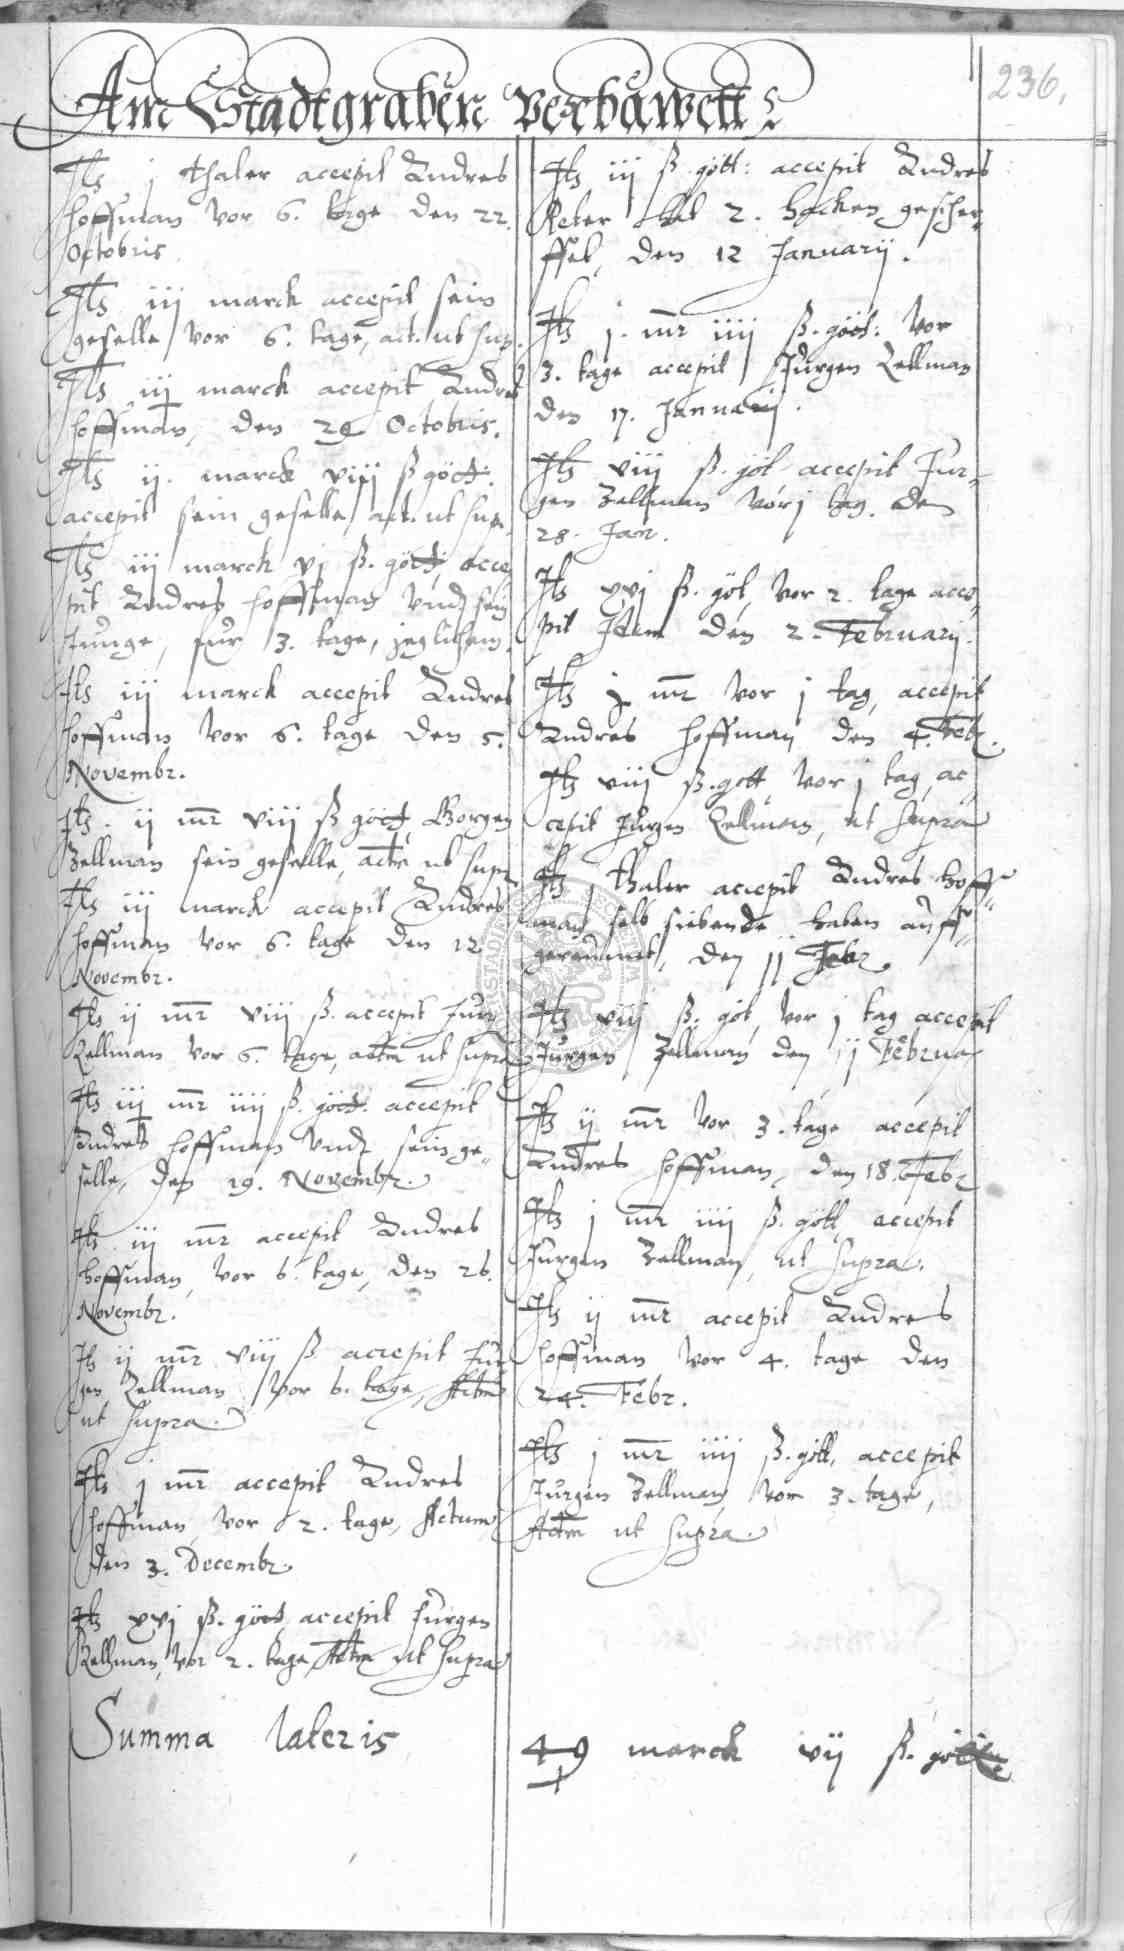 236.
Am Stadtgraben Verbawett
Itz j thaler accepit Andres
Hoffman vor 6. tage den 22.
Octobris.
Itz iij marck accepit sein
geselle, vor 6. tage, act. ut sup.
Itz iij marck accepit Andres
Hoffman, den 29 Octobris.
Itz ij. marck viij ß gött.
accepit sein geselle, act. ut sup.
Itz iij marck vj ß. gött, acce
pit Andres Hoffman vnd sein
Junge, fur 3. tage,
Itz iij marck accepit Andres
Hoffman vor 6. tage den 5.
Novembr.
Itz. ij mr viij ß gött, Gorgen
Zellman sein geselle, actm ut supr
Itz iij marck accepit Andres
Hoffman vor 6. tage den 12
Novembr.
Itz ij mr viij ß. accepit Jurg
Zellman vor 6. tage, actm ut supra
Itz iij mr iiij ß. gött. accepit
Andres Hoffman vnd sein ge-
selle, den 19. Novembr.
Itz iij mr accepit Andres
Hoffman, vor 6. tage, den 26.
Novembr.
Itz ij mr viij ß. accepit Jur
gen Zellman, vor 6. tage, Actm
ut supra.
Itz j mr accepit Andres
Hoffman vor 2. tage, Actum
den 3. Decembr.
Itz xvj ß. gött, accepit Jurgen
Zellman, vor 2. tage, Actm ut supra
Itz iij ß. gött: accepit Andres
hat 2. Hacken gescher-
ffet, den 12 Januarij.
Itz j. mr iiij ß. gött: vor
3. tage accepit Jurgen Zellman
den 17. Januarij.
Itz viij ß. göt accepit Jur-
gen Zellman vor j tag. den
28. Jan.
Itz xvj ß. göt, vor 2. tage acce-
pit Idem den 2. Februarij.
Itz j mr vor j tag, accepit
Andres Hoffman den 4. Febr.
Itz viij ß. gott, vor j tag, ac
cepit Jurgen Zellman, ut supra
Itz j thaler accepit Andres Hoff-
man selb siebende haben auff-
geraumet, den 11 Febr.
Itz viij ß. göt, vor j tag accepit
Jurgen Zellman den ij Februa
Itz ij mr vor 3. tage accepit
Andres Hoffman, den 18. Febr
Itz j mr iiij ß. gött, accepit
Jurgen Zellman, ut supra.
Itz ij mr accepit Andres
Hoffman vor 4. tage den
24. Febr.
Itz j mr iiij ß. gött, accepit
Jurgen Zellman, vor 3. tage,
Actm ut supra.
Summa lateris 49 marck vij ß. gött.